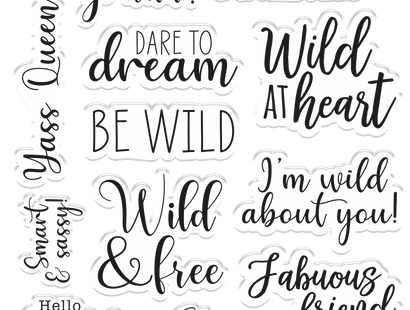 Yass Queen
DARE TO
dream
Wild
AT heart
BE WILD
I'm wild
about you!
Wild
& free
Smart
& sassy!
Fabuous
friend
Hello